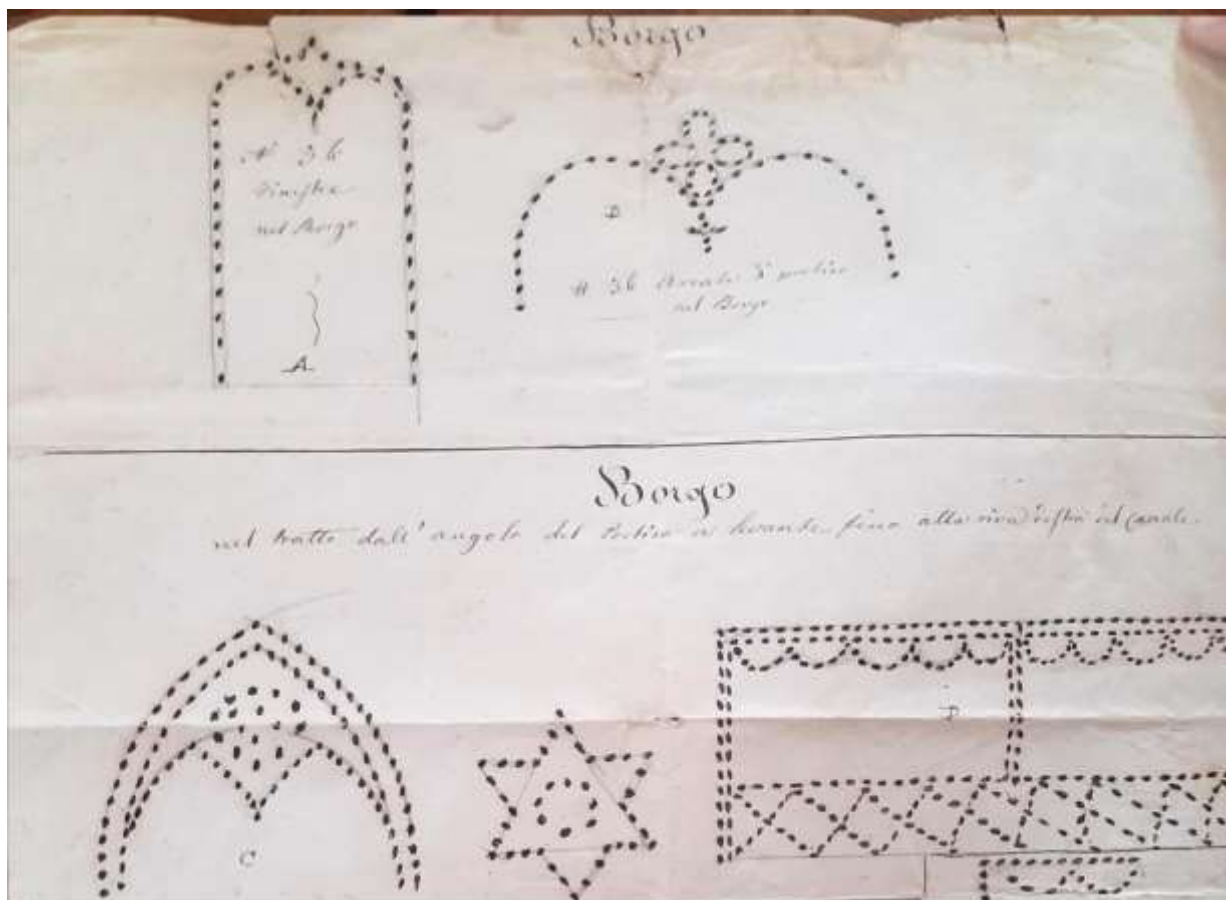 Borgo
N° 36
finestre
nel Borgo
A
D
N 36 Arcate 3° portico
nel Borgo
Borgo
nel tratto dall' angolo del Portico a levante fino alla riva destra del Canale.
C
D